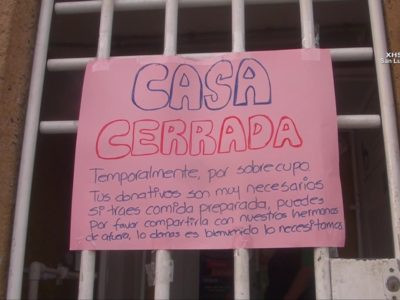 CASA
CERRADA
Temporalmente, por sobrecupo.
Tus donativos son muy necesarios
si traes comida preparada, puedes
por favor compartirla con nuestros hermanos
de afuera, lo donas es bienvenido lo necesitamos
XHS
San Lu